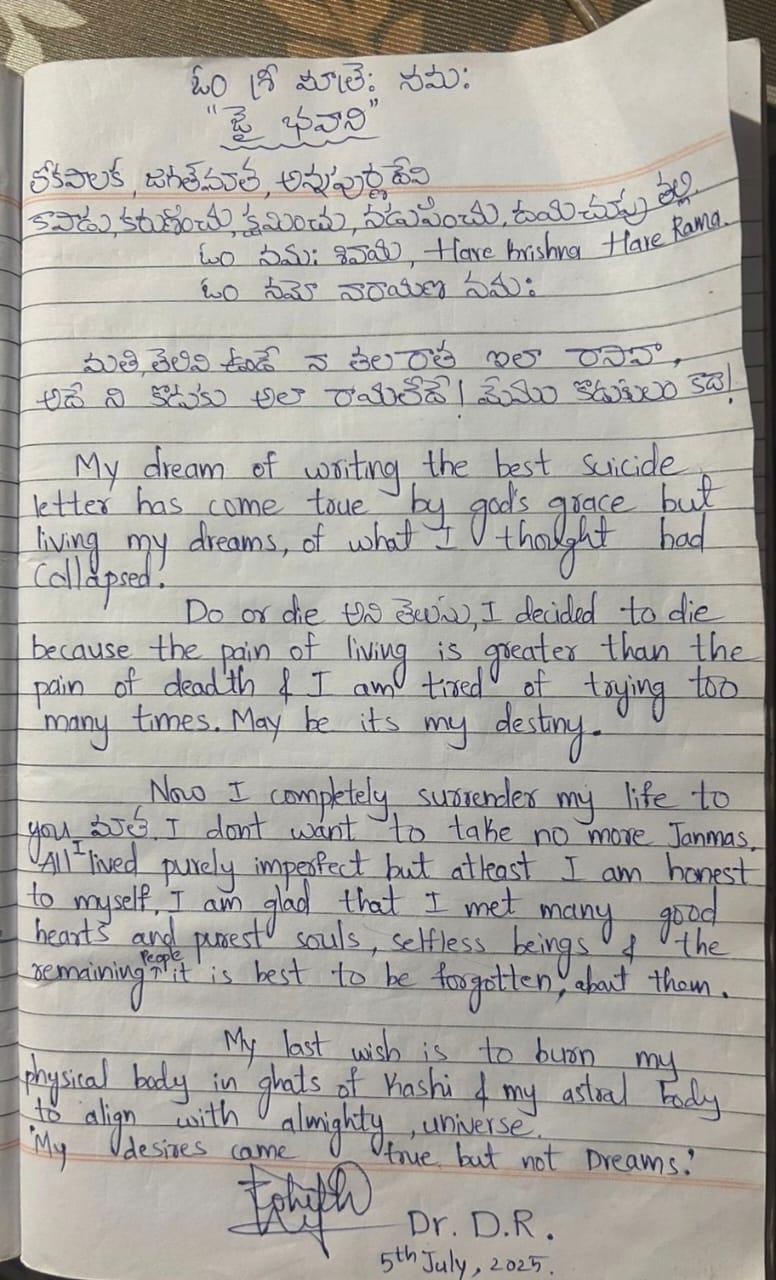 ఓం శ్రీ మాత్రే నమః
"జై భవాని"
జగత్‌మాత, అన్నపూర్ణ దేవి
కాపాడు, కరుణించు, క్షమించు, నడుపించు, తల్లి
ఓం నమః శివాయ, Hare Krishna Hare Rama.
ఓం నమో నారాయణ నమః
మతి, తెలివి ఉండే నా తల రాత ఇలా రాసావా,
అదే ని కొడుకు అలా రాయలేదే! మేము కొడుకులం కదా!
My dream of writing the best suicide
letter has come true by god's grace but
living my dreams, of what I thought had
Collapsed.
Do or die అని తెలుసు, I decided to die
because the pain of living is greater than the
pain of deadth & I am tired of trying too
many times. May be its my destiny.
Now I completely surrender my life to
you మాత. I dont want to take no more Janmas.
All I lived purely imperfect but atleast I am honest
to myself. I am glad that I met many good
hearts and purest souls, selfless beings & the
remaining people it is best to be forgotten, about them.
My last wish is to burn my
physical body in ghats of Kashi & my astral body
to align with almighty, universe.
"My desires came true but not Dreams."
Dr. D.R.
5th July, 2025.